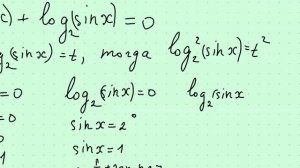 ) + log₂(sin x) = 0
g₂(sin x) = t, тогда log₂²(sin x) = t²
= 0 log₂(sin x) = 0 log₂ sin x
= 0 sin x = 2⁰
1 sin x = 1